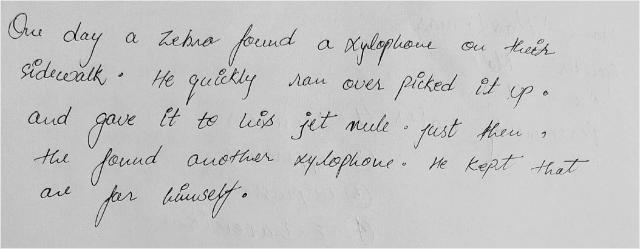 One day a zebra found a xylophone on their
sidewalk. He quickly ran over picked it up.
and gave it to his jet mule. just then.
the found another xylophone. He kept that
are for himself.